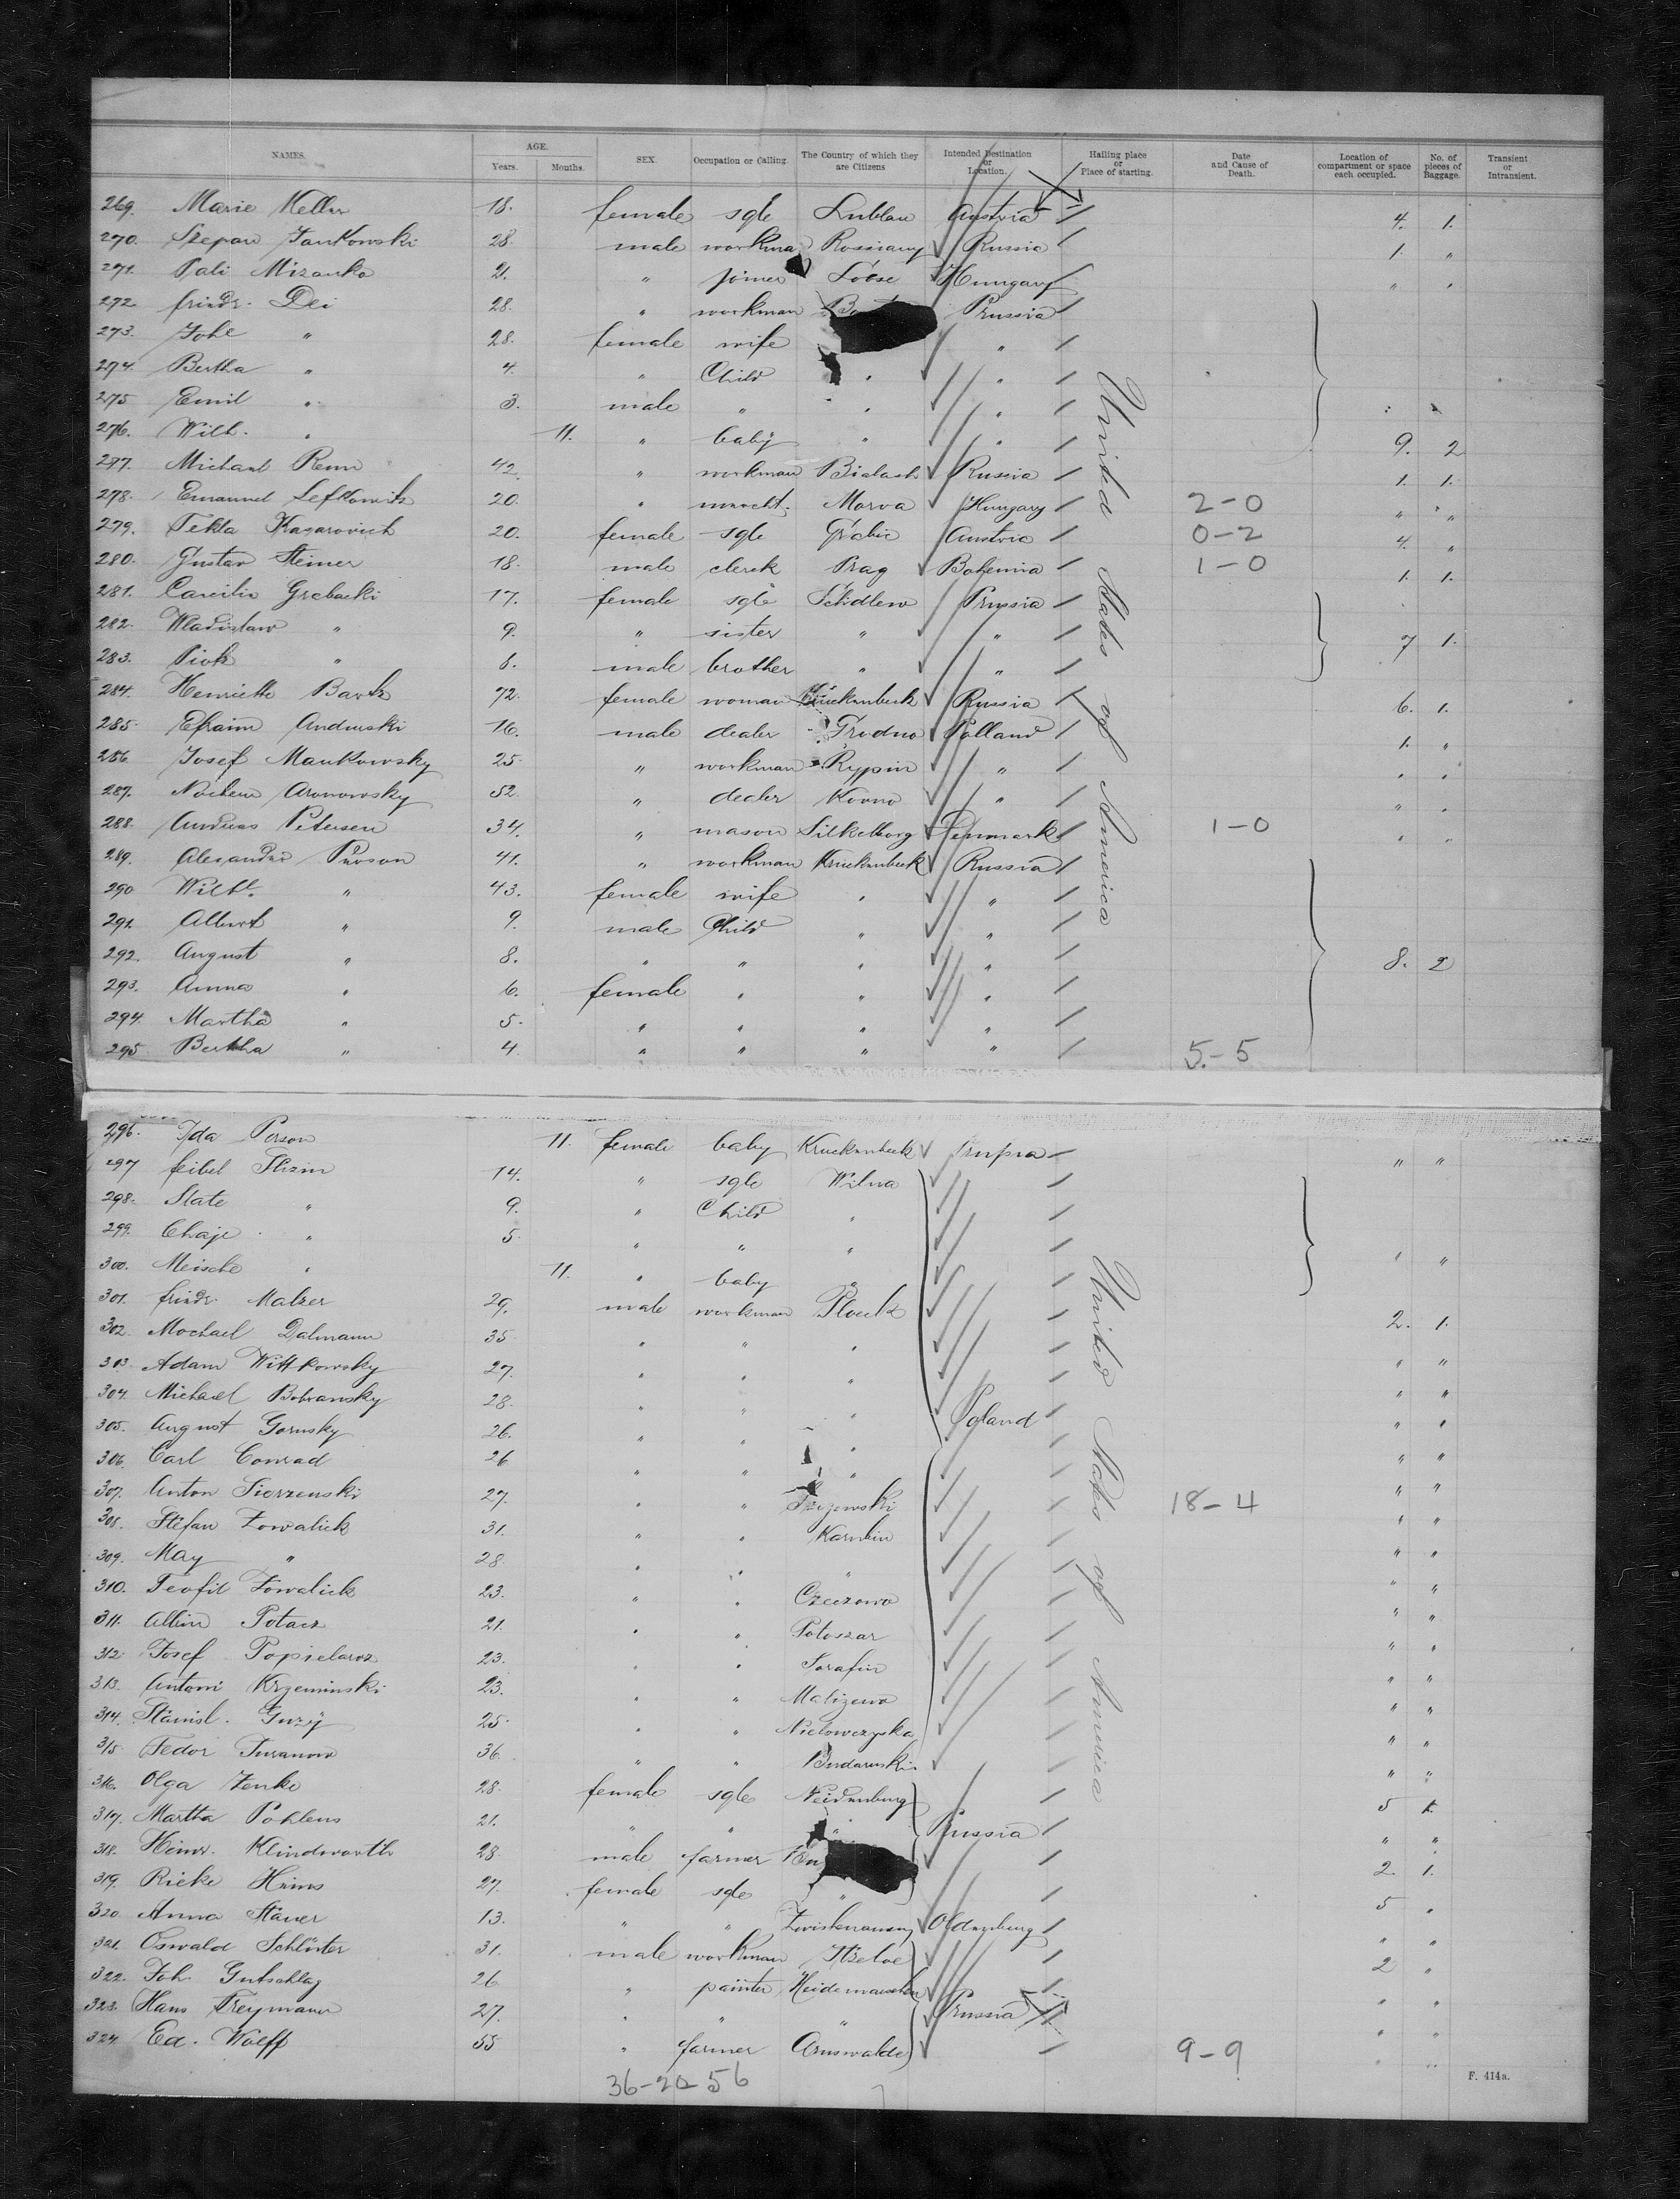 NAMES. AGE. Years. Months. SEX. Occupation or Calling. The Country of which they are Citizens Intended Destination or Location. Hailing place or Place of starting. Date and Cause of Death. Location of compartment or space each occupied. No. of pieces of Baggage. Transient or Intransient.
269. Marie Keller 18. female sgle Lublau Austria 4. 1.
270. Szepan Jankowski 28. male workman Rossiany Russia 1. "
271. Pali Mizanko 21. " joiner Soose Hungary " "
272. friedr. Dei 28. " workman Prussia
273. Johe " 28. female wife "
274. Bertha " 4. " Child " "
275 Emil " 3. male " " "
276. Wilh. " 11. " baby " " 9. 2
277. Michael Renn 42. " workman Bialash Russia 1. 1.
278. Emanuel Lefkowitz 20. " mercht. Morva Hungary 2-0 " "
279. Tekla Kazarovich 20. female sgle Grabie Austria 0-2 4. "
280. Gustav Steiner 18. male clerck Prag Bohemia 1-0 1. 1.
281. Caecilie Grabacki 17. female sgle Schidlew Prussia
282. Wladislaw " 9. " sister " " 7 1.
283. Piotr " 8. male brother " "
284. Henriette Bartz 72. female woman Kruckenbeck Russia 6. 1.
285. Efraim Andurski 16. male dealer Grodno Polland 1. "
286 Josef Mankowsky 25 " workman Rypin " " "
287. Nochem Aronowsky 52. " dealer Kovno " " "
288. Andreas Petersen 34. " mason Silkeborg Denmark 1-0 " "
289. Alexander Person 41. " workman Kruckenbeck Russia
290 Wilhe. " 43. female wife " "
291. Albert " 9. male Child " "
292. August " 8. " " " " 8. 2
293. Anna " 6. female " " "
294. Martha " 5. " " " "
295. Bertha " 4. " " " " 5-5
United States of America
296. Ida Person 11. female baby Kruckenbeck Prussia " "
297 feibel Slizin 14. " sgle Wilna
298. Slate " 9. " Child "
299. Chaje " 5 " " "
300. Meische " 11. " baby " " "
301. friedr. Malzer 29. male workman Plock 2. 1.
302. Mochael Dalmann 35 " " " " "
303. Adam Wittkowsky 27. " " " " "
304. Michael Bobransky 28. " " " Poland " "
305. August Gornsky 26. " " " " "
306. Carl Conrad 26 " " " " "
307. Anton Sierzenski 27. " " 18-4 " "
308. Stefan Kowalick 31. " " Karnbin " "
309. May " 28. " " " " "
310. Teofil Kowalick 23. " " Czeczowo " "
311. Albin Potacz 21. " " Potoszar " "
312. Josef Popielarcz 23. " " Sarafin " "
313. Antoni Krzeminski 23. " " Malizewo " "
314. Stanisl. Guzy 25. " " Nielowczyska " "
315 Fedor Turanow 36. " " Budarski " "
316. Olga Zenke 28. female sgle Neidenburg 5 1.
317. Martha Pohlens 21. " " " Prussia " "
318. Heinr. Klindworth 28. male farmer 2. 1.
319. Rieke Heims 27. female sgle " 5 "
320. Anna Stauer 13. " " Zwischenahn Oldenburg " "
321. Oswald Schlüter 31. male workman Itzehoe 2 "
322. Joh. Gutschlag 26 " painter " "
323. Hans Freymann 27. " " " Prussia " "
324 Ed. Wolff 55 " farmer Arnswalde 9-9 " "
United States of America
36-20 56
F. 414a.